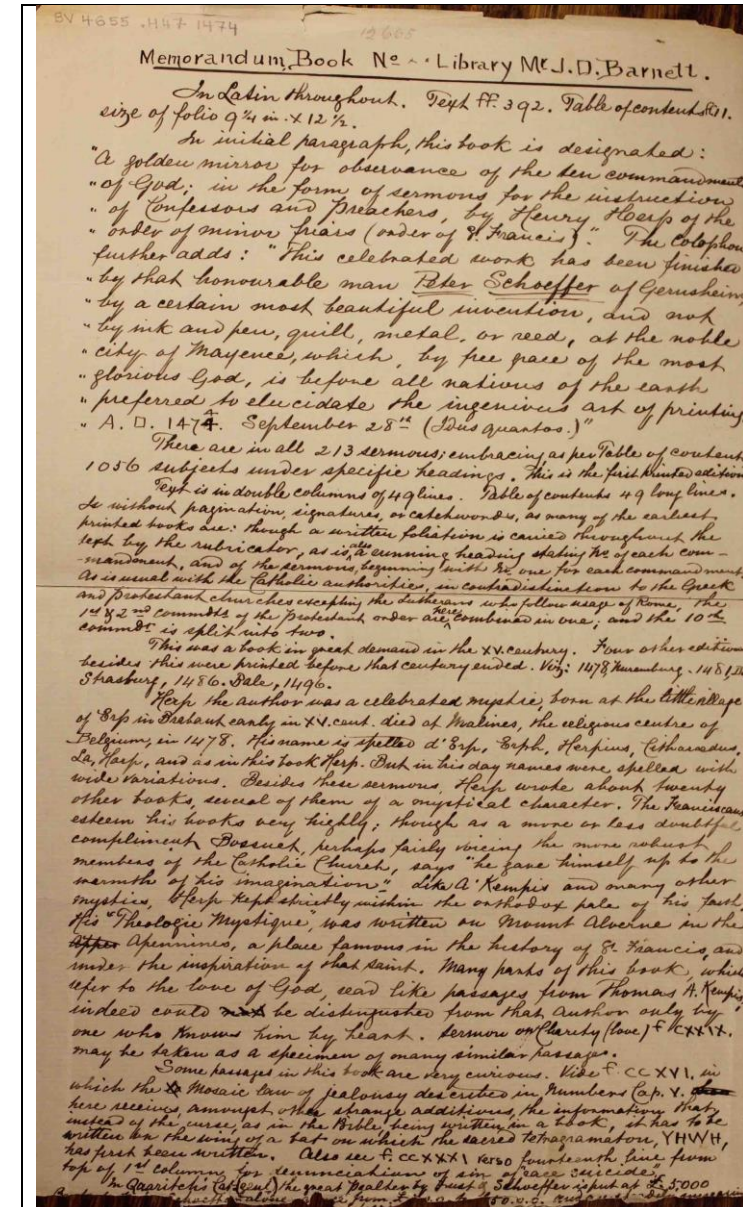 BV 4655 .H47 1474
12665
Memorandum Book No - Library Mr J.D. Barnett.
In Latin throughout. Text ff. 392. Table of contents ff 11.
size of folio 9 1/4 in. x 12 1/2.
In initial paragraph, this book is designated:
"A golden mirror for observance of the ten commandment
" of God; in the form of sermons for the instruction
" of Confessors and Preachers, by Henry Herp of the
" order of minor friars (order of St. Francis)". The colophon
further adds: "This celebrated work has been finished
" by that honourable man Peter Schoeffer of Gernsheim,
" by a certain most beautiful invention, and not
" by ink and pen, quill, metal, or reed, at the noble
" city of Mayence, which, by free grace of the most
" glorious God, is before all nations of the earth
" preferred to elucidate the ingenious art of printing
" A.D. 1474. September 28th (Idus quartos.)"
There are in all 213 sermons; embracing as per Table of content
1056 subjects under specific headings. This is the first printed edition
Text is in double columns of 49 lines. Table of contents 49 long lines.
Is without pagination, signatures, or catchwords, as many of the earliest
printed books are: though a written foliation is carried throughout the
text by the rubricator, as is also a running heading stating No. of each com-
-mandment, and of the sermons, beginning with No. one for each commandment.
As is usual with the Catholic authorities, in contradistinction to the Greek
and Protestant churches excepting the Lutherans who follow usage of Rome, the
1st & 2nd commdts of the Protestant order are here combined in one; and the 10th
commdt is split into two.
This was a book in great demand in the XV. century. Four other edition
besides this were printed before that century ended. Viz: 1478, Nuremburg - 1481,
Strasburg, 1486. Bale, 1496.
Herp the author was a celebrated mystic, born at the little village
of Erp in Brabant early in XV. cent. died at Malines, the religious centre of
Belgium, in 1478. His name is spelled d'Erp, Erph, Herpius, Citharædus,
La, Harp, and as in this book Herp. But in his day names were spelled with
wide variations. Besides these sermons, Herp wrote about twenty
other books, several of them of a mystical character. The Franciscans
esteem his books very highly; though as a more or less doubtful
compliment Bossuet, perhaps fairly voicing the more robust
members of the Catholic Church, says "he gave himself up to the
warmth of his imagination". Like A'Kempis and many other
mystics, Herp kept strictly within the orthodox pale of his faith
His "Theologie Mystique", was written on Mount Alverne in the
Apennines, a place famous in the history of St. Francis, and
under the inspiration of that saint. Many parts of this book, which
refer to the love of God, read like passages from Thomas A. Kempis,
indeed could be distinguished from that author only by
one who knows him by heart. Sermon on Charity (love) f. CXXIX.
may be taken as a specimen of many similar passages.
Some passages in this book are very curious. Vide f. CCXVI, in
which the Mosaic law of jealousy described in Numbers Cap. V.
here receives, amongst other strange additions, the information that
instead of the curse, as in the Bible, being written in a book, it has to be
written on the wing of a bat on which the sacred tetragramaton, YHWH,
has first been written. Also see f. CCXXXI verso fourteenth line from
top of 1st column, for denunciation of sin of "race suicide".
In Quaritch's the great Psalter by Fust & Schoeffer is put at £5,000